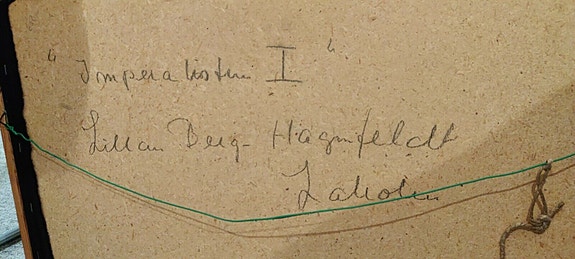 "Imperialisten I"
Lillan Berg-Hagenfeldt
Laholm